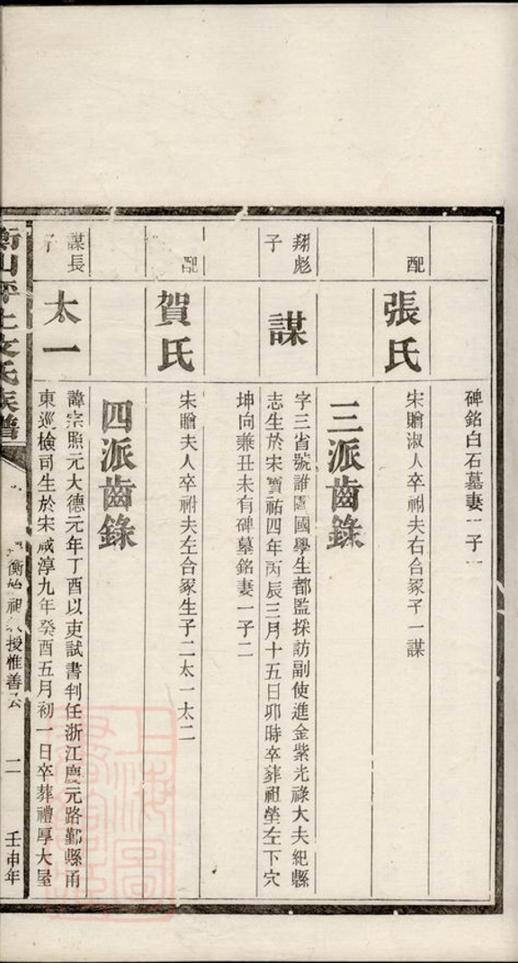 碑銘白石墓妻一子一
配
張氏
宋贈淑人卒祔夫右合冢子一謀
三派齒錄
翔彪
子
謀
字三省號誰國學生都監採訪副使進金紫光祿大夫紀縣
志生於宋寶祐四年丙辰三月十五日卯時卒葬祖塋左下穴
坤向兼丑未有碑墓銘妻一子二
配
賀氏
宋贈夫人卒祔夫左合冢生子二太一太二
四派齒錄
謀長
子
太一
諱宗照元大德元年丁酉以吏試書判任浙江慶元路鄞縣甬
東巡檢司生於宋咸淳九年癸酉五月初一日卒葬禮厚大屋
衡山平土文氏族譜
衡始祖教授惟善公
二
壬申年